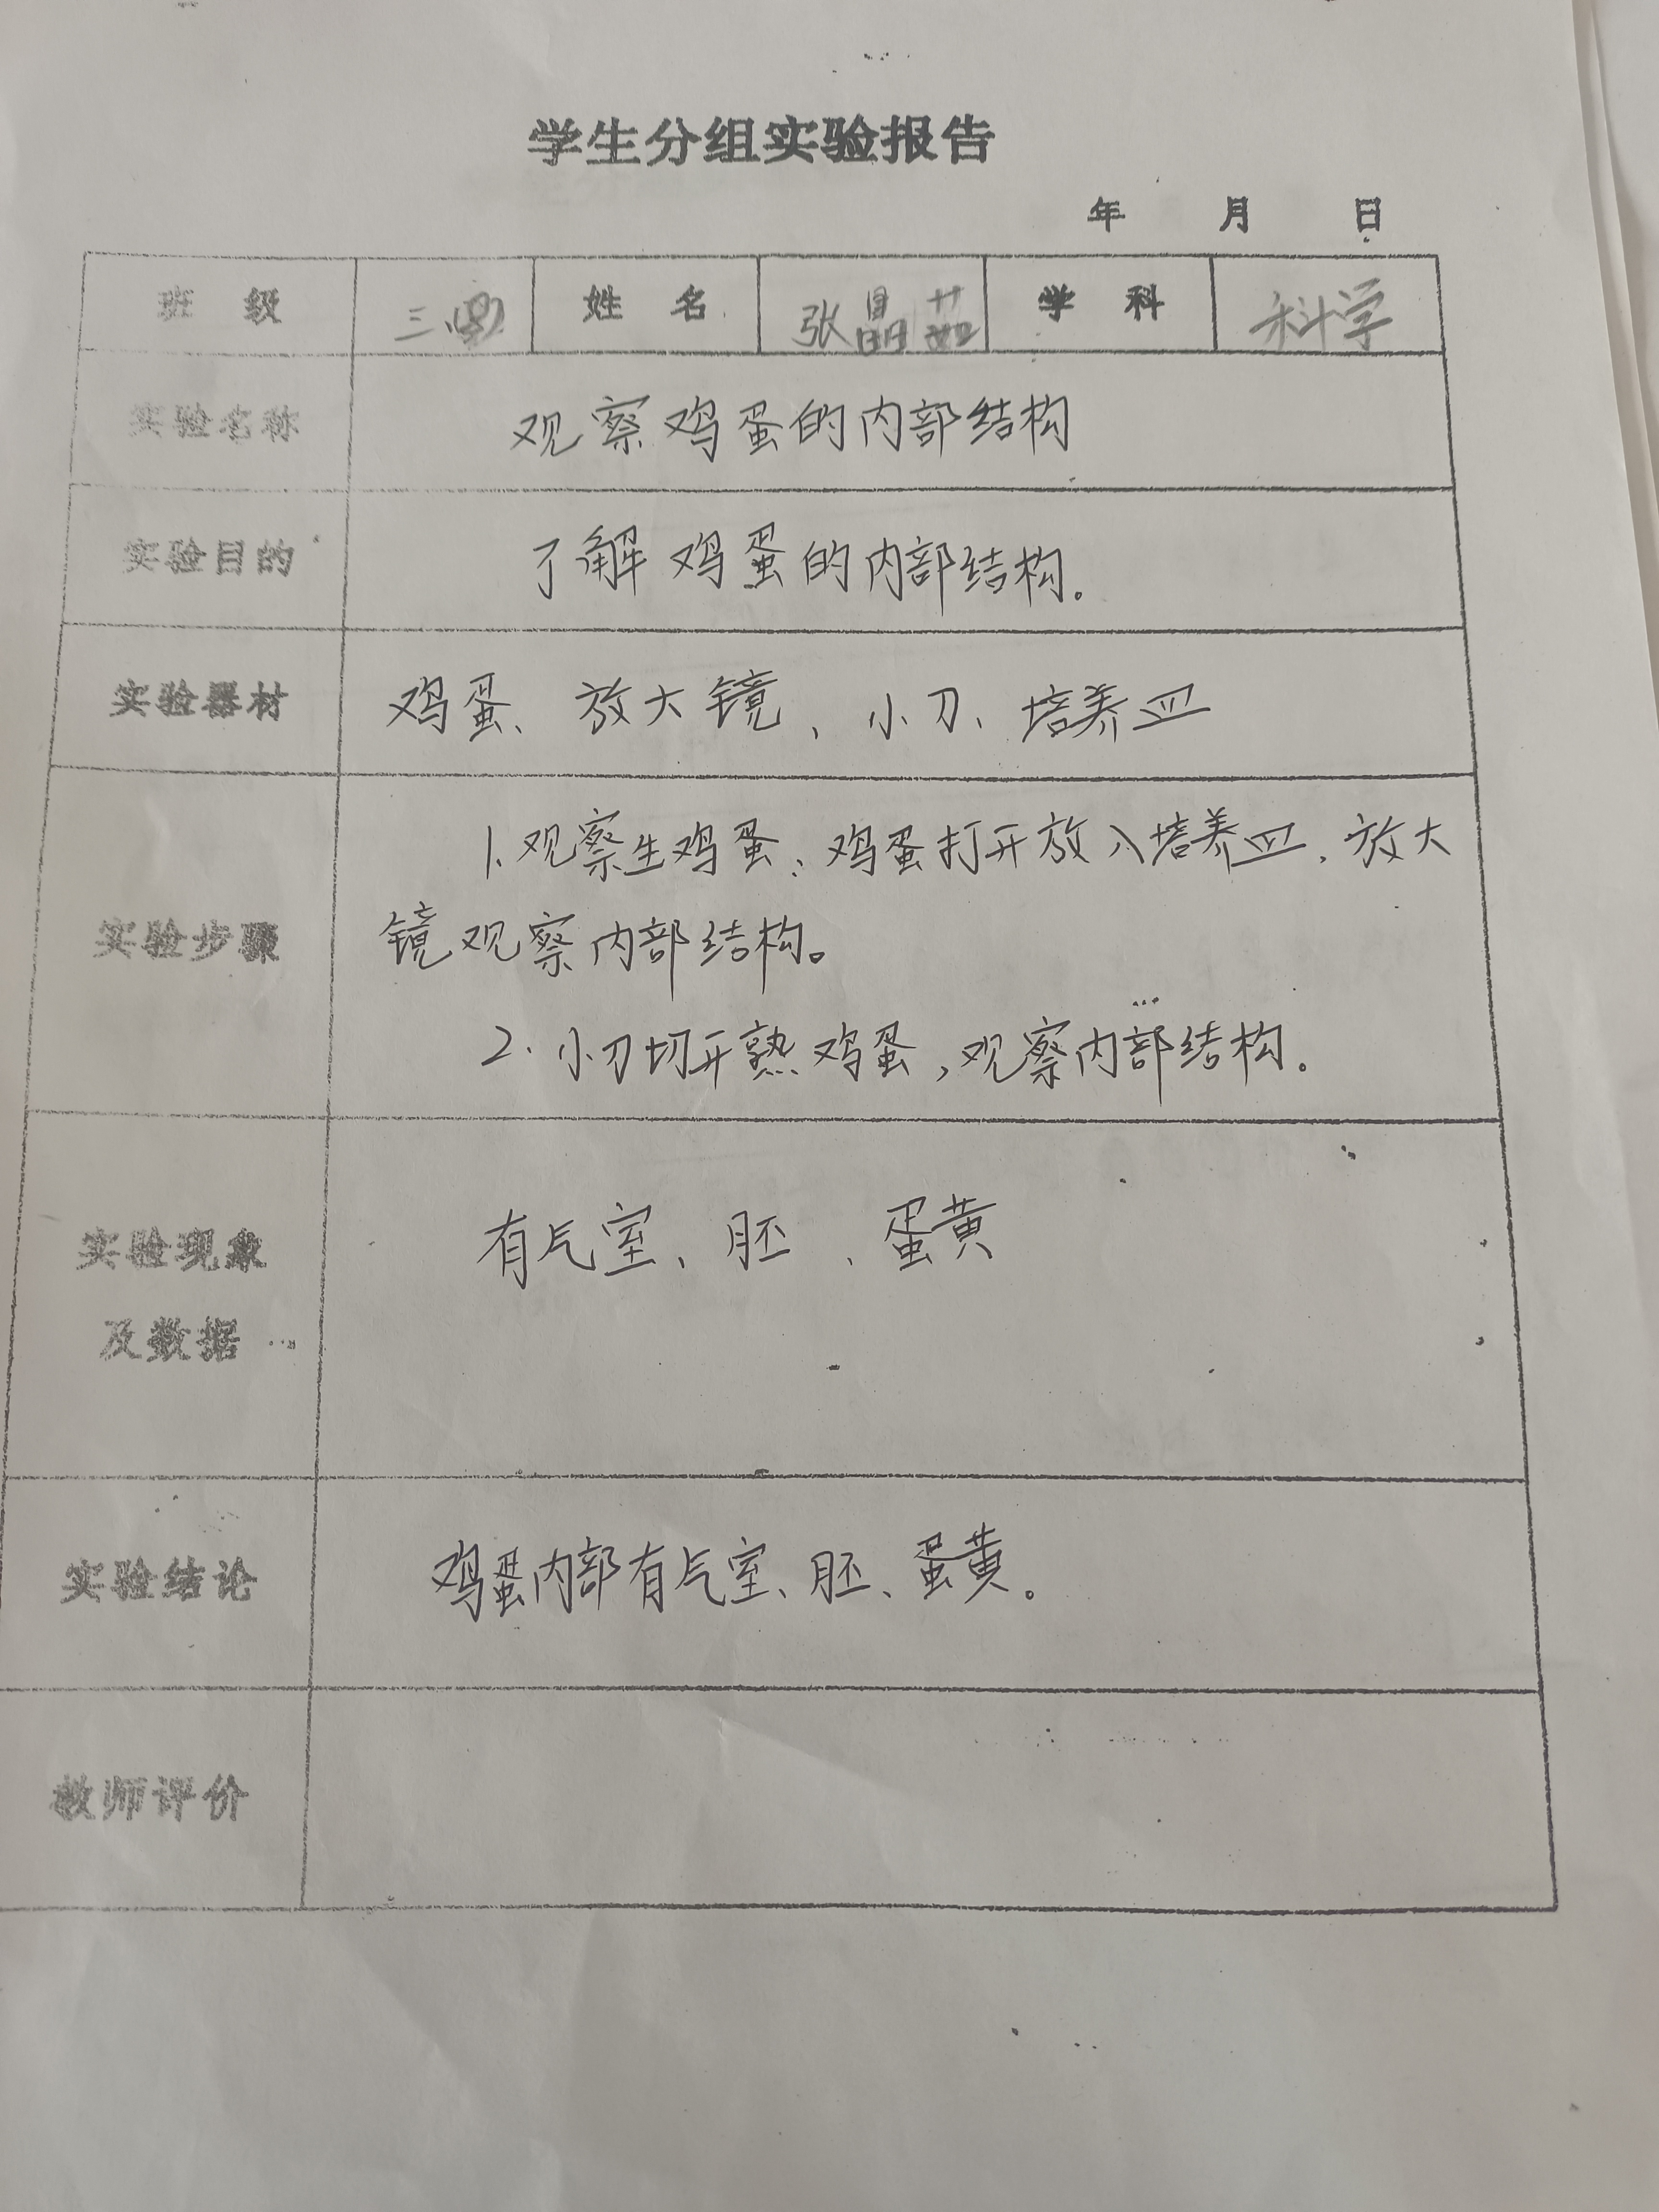 学生分组实验报告
年 月 日
班 级 三 姓 名 张晶 学 科 科学
实验名称 观察鸡蛋的内部结构
实验目的 了解鸡蛋的内部结构。
实验器材 鸡蛋、放大镜、小刀、培养皿
实验步骤 1.观察生鸡蛋:鸡蛋打开放入培养皿,放大
镜观察内部结构。
2.小刀切开熟鸡蛋,观察内部结构。
实验现象 有气室、胚、蛋黄
及数据
实验结论 鸡蛋内部有气室、胚、蛋黄。
教师评价